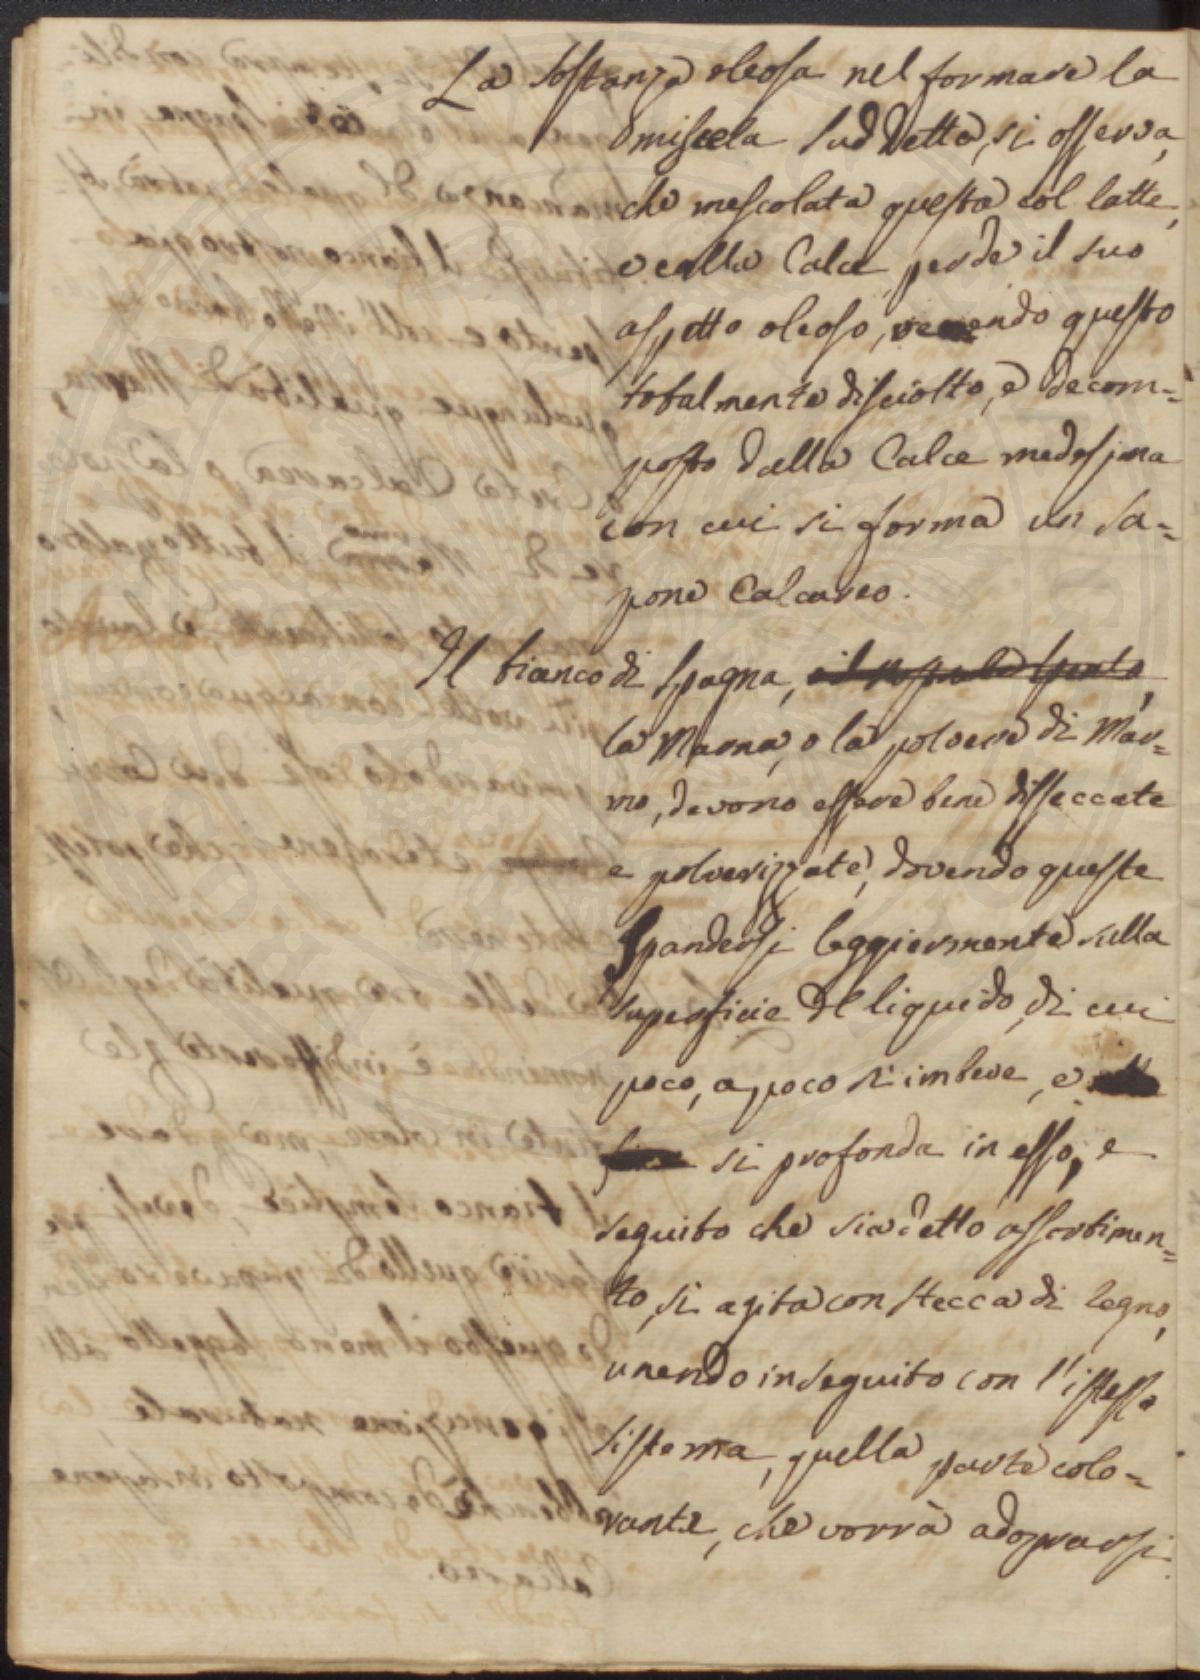 La Sostanza oleosa nel formare la
miscela Suddetta, si osserva,
che mescolata questa col latte,
e colla Calce, perde il suo
aspetto oleoso, venendo questo
totalmente disciolto, e decom=
posto dalla Calce medesima
con cui si forma un Sa=
pone Calcareo.
Il bianco di Spagna,
la Marna, o la polvere di Mar=
mo, devono essere bene disseccate
e polverizzate, dovendo queste
Spandersi leggiermente sulla
superficie del liquido, di cui
poco, a poco si imbeve, e
si profonda in esso, e
seguito che sia detto assortimen=
to, si agita con stecca di legno,
unendo in seguito con l'istesso
sistema, quella parte colo=
rante, che vorrà adoprarsi.